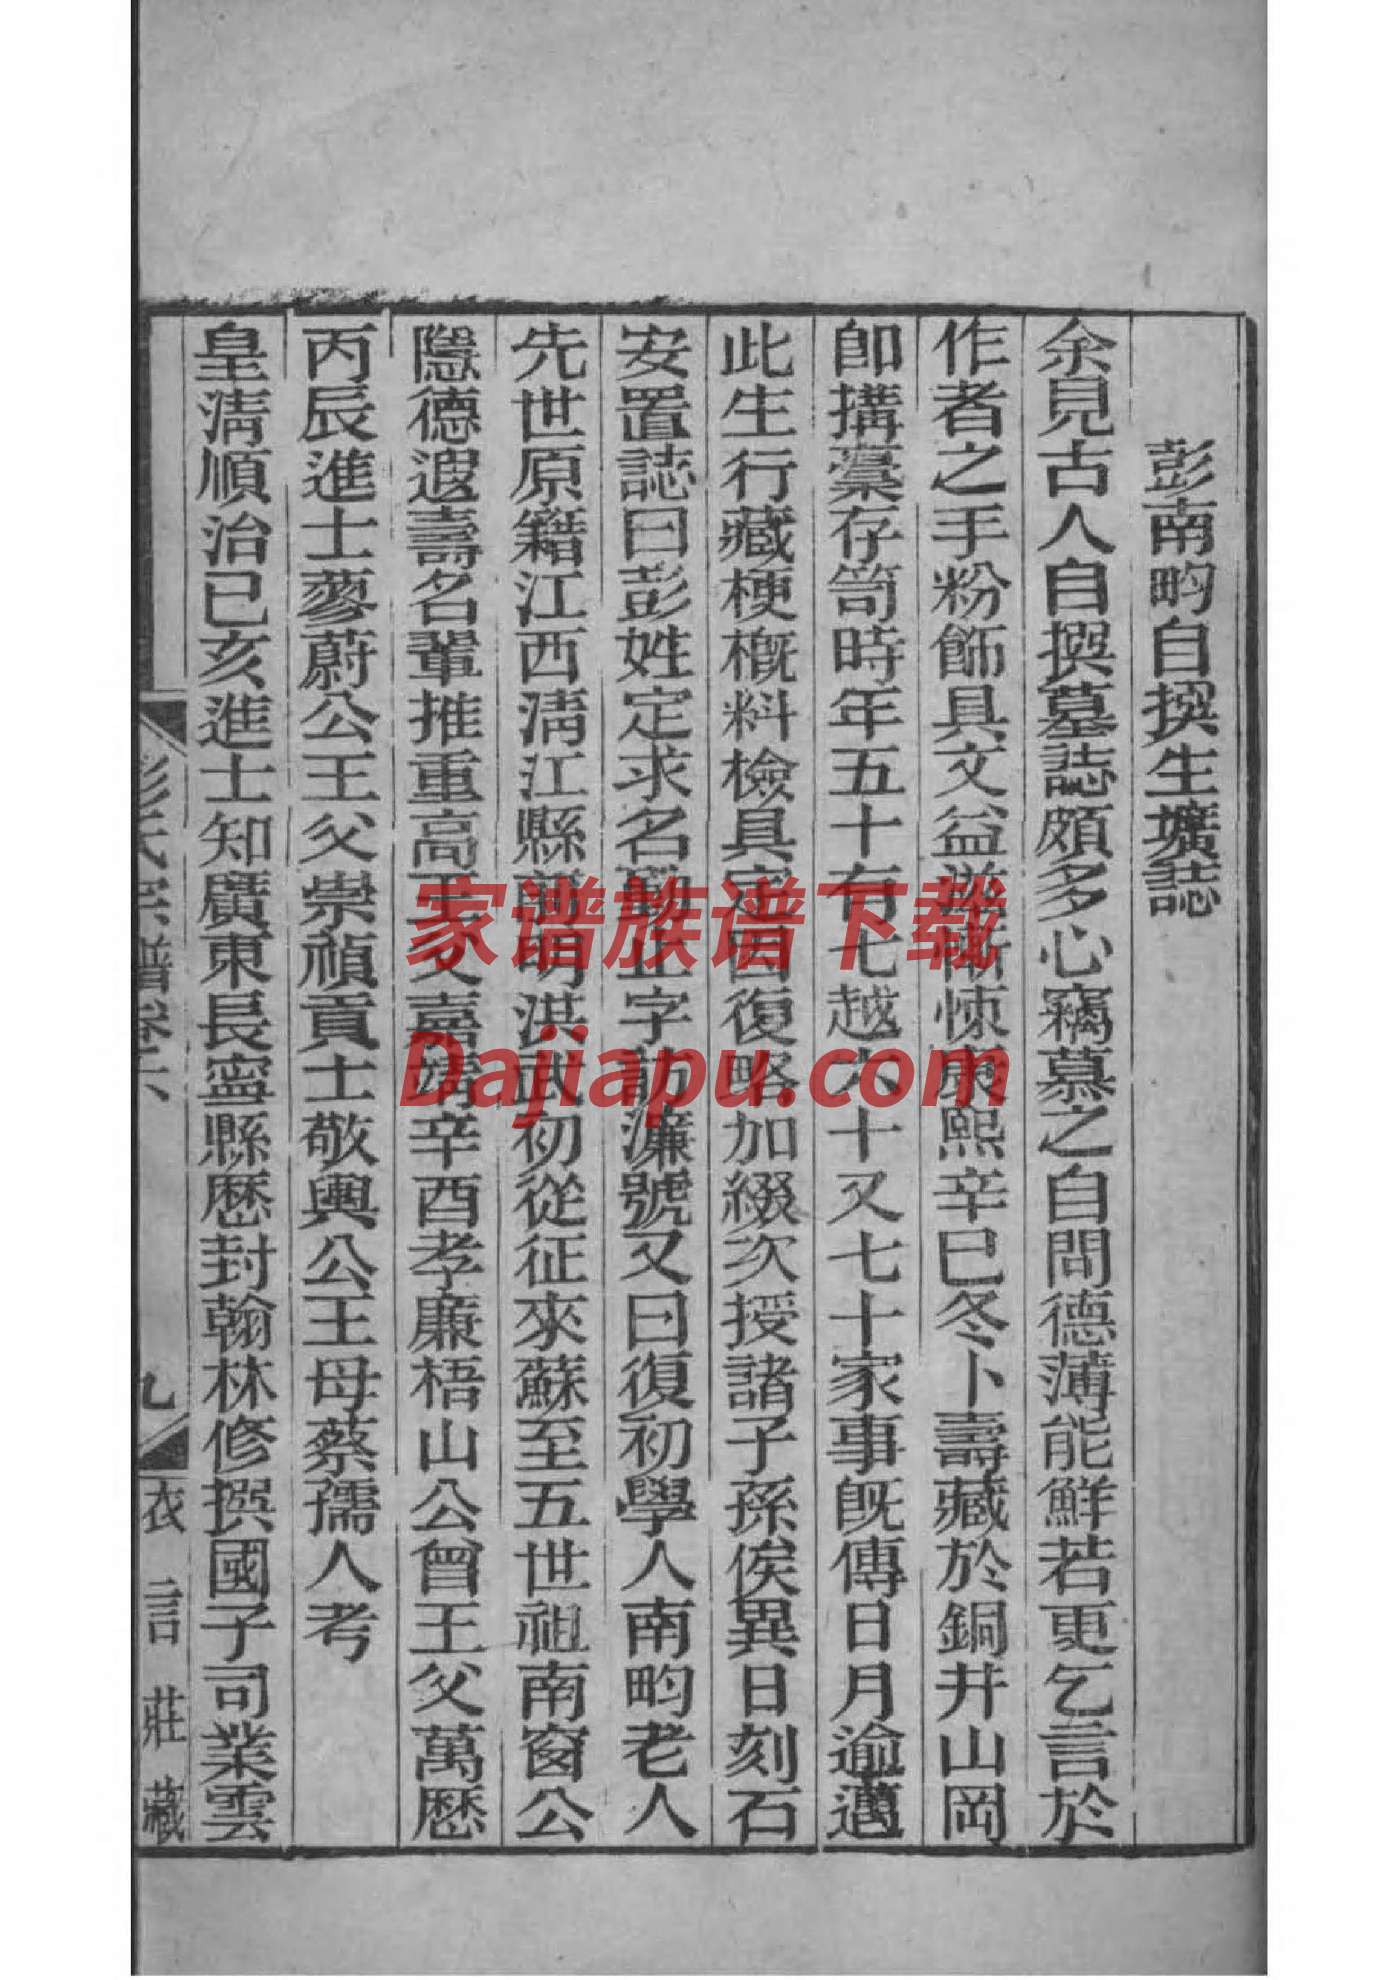 彭南畇自撰生壙誌
余見古人自撰墓誌頗多心竊慕之自問德薄能鮮若更乞言於
作者之手粉飾具文益滋慚悚康熙辛巳冬卜壽藏於銅井山岡
卽搆藁存笥時年五十有七越六十又七十家事旣傳日月逾邁
此生行藏梗槪料檢具定因復略加綴次授諸子孫俟異日刻石
安置誌曰彭姓定求名勤止字訪濂號又曰復初學人南畇老人
先世原籍江西淸江縣前明洪武初從征來蘇至五世祖南窗公
隱德遐壽名輩推重高王父嘉靖辛酉孝廉梧山公曾王父萬厯
丙辰進士蓼蔚公王父崇禎貢士敬輿公王母蔡孺人考
皇淸順治己亥進士知廣東長寧縣厯封翰林修撰國子司業雲
彭氏宗譜卷六
九
衣言莊藏
家谱族谱下载
Dajiapu.com